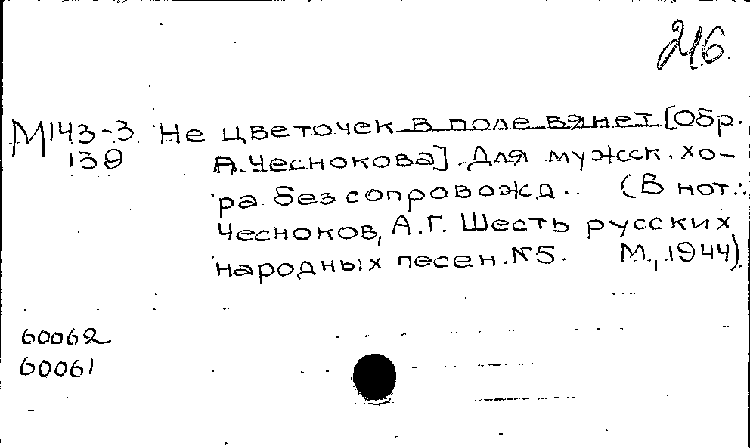 216.
М143-3 Не цветочек в поле вянет [Обр.
139 А.Чеснокова]. Для мужск. хо-
ра без сопровожд.. (В нот.:
Чесноков, А.Г. Шесть русских
народных песен. №5. М., 1944)
60062
60061